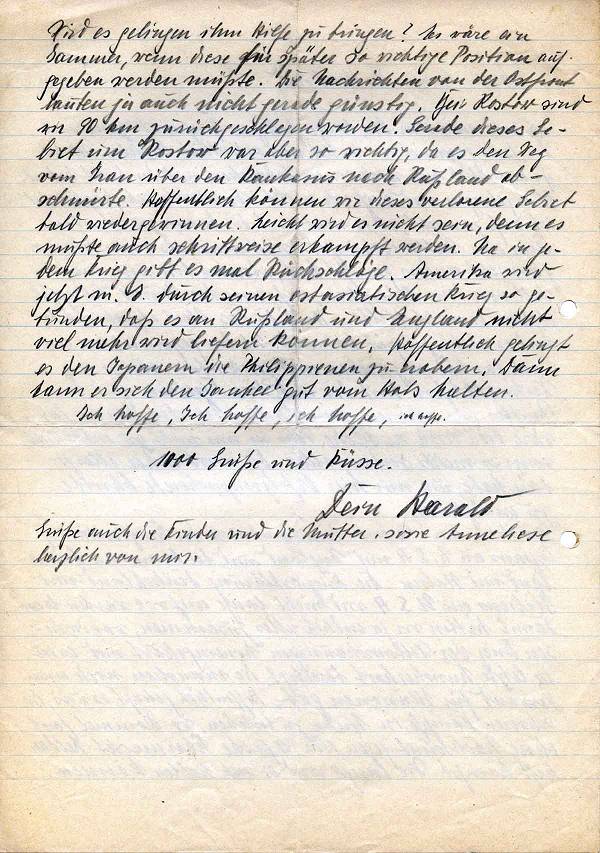 Wird es gelingen ihm Hilfe zu bringen? Es wäre ein
Jammer, wenn diese für später so wichtige Position auf-
gegeben werden müßte. Die Nachrichten von der Ostfront
lauten ja auch nicht gerade günstig. Bei Rostow sind
wir 90 km zurückgeschlagen worden. Gerade dieses Ge-
biet um Rostow war aber so wichtig, da es den Weg
vom Iran über den Kaukasus nach Rußland ab-
schnürte. Hoffentlich können wir dieses verlorene Gebiet
bald wiedergewinnen. Leicht wird es nicht sein, denn es
müßte auch schrittweise erkämpft werden. Na in je-
dem Krieg gibt es mal Rückschläge. Amerika wird
jetzt m. E. durch seinen ostasiatischen Krieg so ge-
bunden, daß es an Rußland und England nicht
viel mehr wird liefern können. Hoffentlich gelingt
es den Japanern die Philippienen zu erobern. Dann
kann er sich den Yankee gut vom Hals halten.
Ich hoffe, Ich hoffe, ich hoffe, ich hoffe.
1000 Grüße und Küsse.
Dein Harald
Grüße auch die Kinder und die Mutter sowie Anneliese
herzlich von mir.